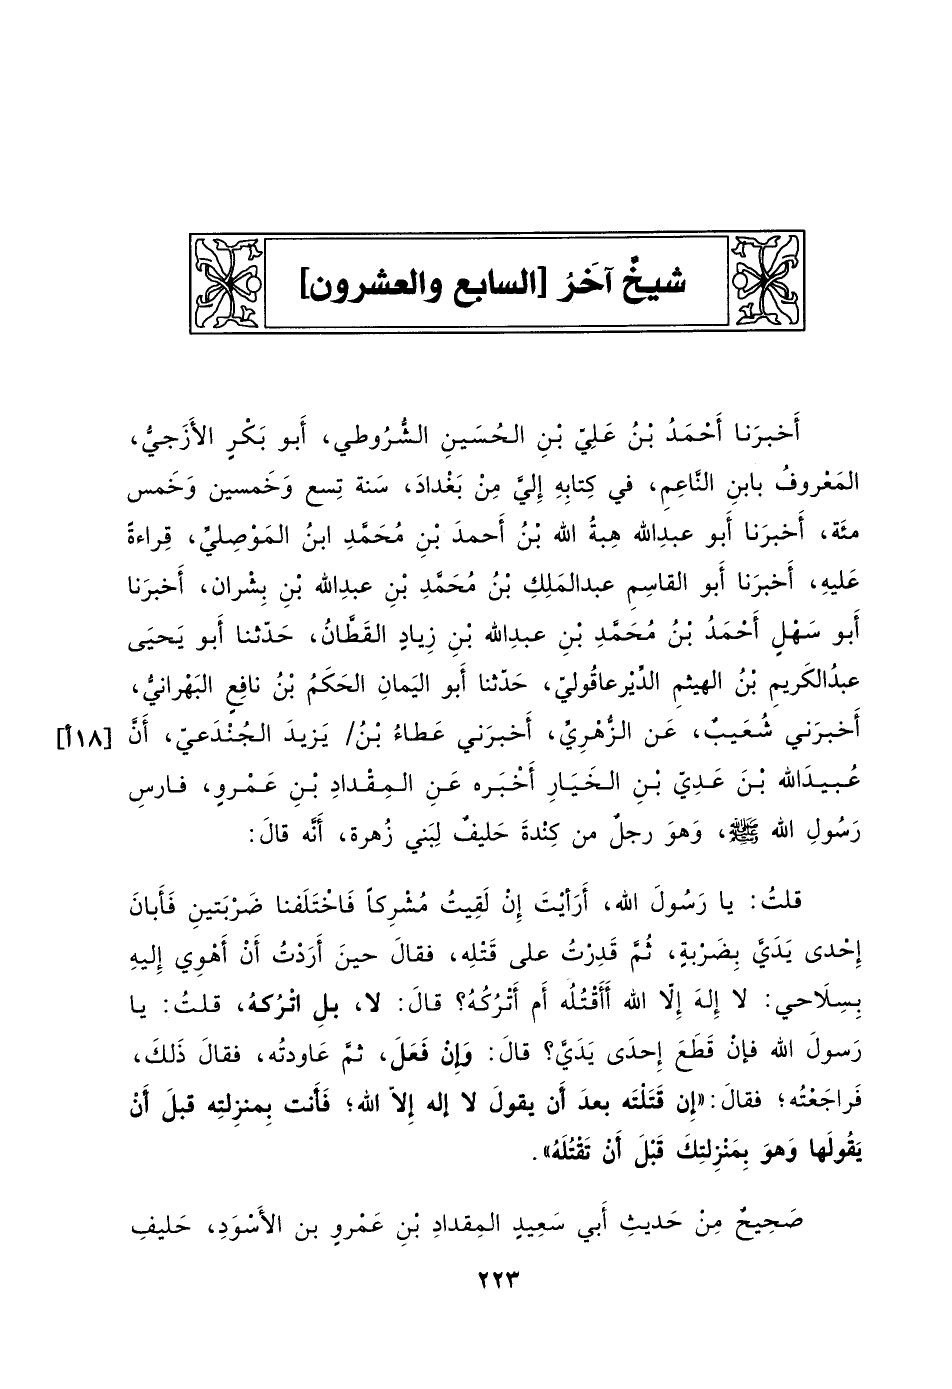 شيخٌ آخَرُ [السابع والعشرون]
أَخبرَنا أَحْمَدُ بْنُ عَلِيّ بْنِ الحُسَينِ الشُّرُوطي، أَبو بَكْرٍ الأَزَجيُّ،
المَعْروفُ بابنِ النَّاعِمِ، في كِتابِهِ إِليَّ مِنْ بَغْدادَ، سَنة تِسع وَخَمسين وَخَمس
مئَة، أَخبرَنا أَبو عبدِالله هِبةُ الله بْنُ أَحمدَ بْنِ مُحَمَّدِ ابنُ المَوْصِليِّ، قِراءةً
عَليهِ، أَخبرَنا أَبو القاسِمِ عبدالمَلِكِ بْنُ مُحَمَّدِ بْنِ عبدِالله بْنِ بِشْران، أَخبرَنا
أَبو سَهْلٍ أَحْمَدُ بْنُ مُحَمَّدِ بْنِ عبدِالله بْنِ زِيادٍ القَطَّانُ، حَدّثنا أَبو يَحيَى
عبدُالكَريمِ بْنُ الهيثمِ الدِّيْرعاقُوليّ، حَدّثنا أَبو اليَمانِ الحَكَمُ بْنُ نافِعٍ البَهْرانيُّ،
أَخبرَني شُعَيبٌ، عَن الزُّهْرِيِّ، أَخبرَني عَطاءُ بْنُ/ يَزيدَ الجُنْدَعيّ، أَنَّ [١٨أ]
عُبيدَالله بْنَ عَدِيّ بْنِ الخَيَارِ أَخْبَره عَنِ المِقْدادِ بْنِ عَمْروٍ، فارسِ
رَسُولِ الله ﷺ، وَهوَ رجلٌ من كِندةَ حَليفٌ لِبَني زُهرة، أَنَّه قالَ:
قلتُ: يا رَسُولَ الله، أَرَأيْتَ إِنْ لَقِيتُ مُشْرِكاً فَاخْتَلَفنا ضَرْبَتينِ فَأَبانَ
إِحْدى يَدَيَّ بِضَرْبةٍ، ثُمَّ قَدِرْتُ على قَتْلِه، فقالَ حينَ أَرَدْتُ أَنْ أَهْوِي إِليهِ
بِسِلَاحي: لا إِلهَ إِلّا الله أَأَقْتُلُه أَم أَتْرُكُهُ؟ قالَ: لا، بلِ اتْرُكهُ، قلتُ: يا
رَسولَ الله فإنْ قَطَعَ إِحدَى يَدَيَّ؟ قالَ: وَإِنْ فَعَلَ، ثمَّ عَاودتُه، فقالَ ذَلكَ،
فَراجَعْتُه؛ فقالَ: «إِن قَتَلْتَه بعدَ أَن يقولَ لا إله إِلاّ الله؛ فَأَنت بِمنزِلتِه قبلَ أَنْ
يَقُولَها وَهوَ بِمَنْزِلتِكَ قَبْلَ أَنْ تَقْتُلَهُ».
صَحِيحٌ مِنْ حَديثِ أَبي سَعِيدٍ المِقدادِ بْنِ عَمْروِ بن الأَسْوَدِ، حَليفِ
٢٢٣